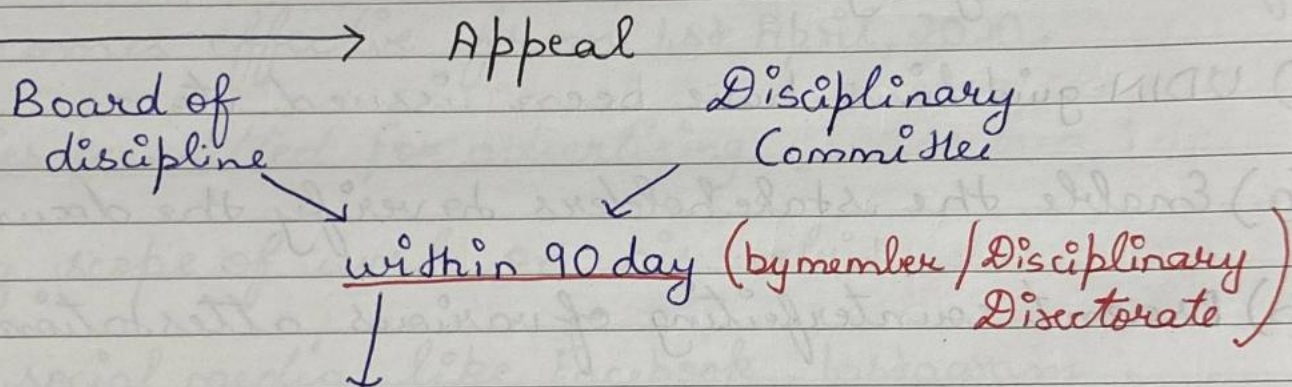 → Appeal
Board of Disciplinary
discipline Committee
within 90 day (by member / Disciplinary
Directorate)